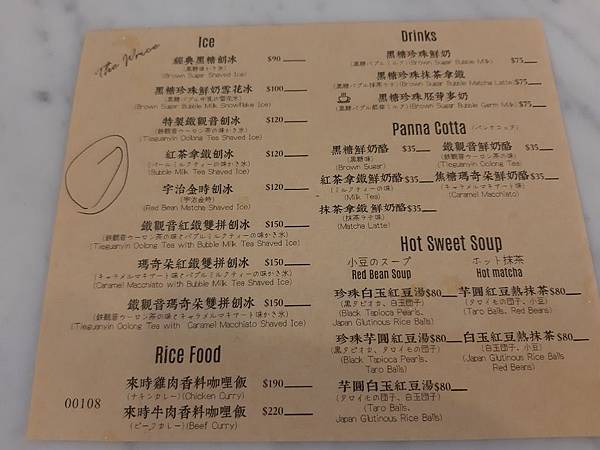 Ice
經典黑糖刨冰 $90
(黒糖味かき氷)
(Brown Sugar Shaved Ice)
黑糖珍珠鮮奶雪花冰 $100
(Brown Sugar Bubble Milk Snowflake Ice)
特製鐵觀音刨冰 $120
(鉄観音ウーロン茶の味かき氷)
(Tieguanyin Oolong Tea Shaved Ice)
紅茶拿鐵刨冰 $120
(パールミルクティーの味かき氷)
(Bubble Milk Tea Shaved Ice)
宇治金時刨冰 $120
(宇治金時)
(Red Bean Matcha Shaved Ice)
鐵觀音紅鐵雙拼刨冰 $150
(鉄観音ウーロン茶の味とバブルミルクティーの味かき氷)
(Tieguanyin Oolong Tea with Bubble Milk Tea Shaved Ice)
瑪奇朵紅鐵雙拼刨冰 $150
(キャラメルマキアート味とバブルミルクティーの味かき氷)
(Caramel Macchiato with Bubble Milk Tea Shaved Ice)
鐵觀音瑪奇朵雙拼刨冰 $150
(鉄観音ウーロン茶の味とキャラメルマキアートの味かき氷)
(Tieguanyin Oolong Tea with Caramel Macchiato Shaved Ice)
Rice Food
來時雞肉香料咖哩飯 $190
(チキンカレー)(Chicken Curry)
來時牛肉香料咖哩飯 $220
(ビーフカレー)(Beef Curry)
00108
Drinks
黑糖珍珠鮮奶
(黒糖バブルミルク)(Brown Sugar Bubble Milk) $75
黑糖珍珠抹茶拿鐵
(黒糖バブル抹茶ラテ)(Brown Sugar Bubble Matcha Latte) $75
黑糖珍珠胚芽麥奶
(Brown Sugar Bubble Germ Milk) $75
Panna Cotta (パンナコッタ)
黑糖鮮奶酪 $35 鐵觀音鮮奶酪 $35
(黒糖味) (鉄観音ウーロン茶の味)
(Brown Sugar) (Tieguanyin Oolong Tea)
紅茶拿鐵鮮奶酪 $35 焦糖瑪奇朵鮮奶酪 $35
(ミルクティーの味) (キャラメルマキアート味)
(Milk Tea) (Caramel Macchiato)
抹茶拿鐵鮮奶酪 $35
(抹茶ラテ味)
(Matcha Latte)
Hot Sweet Soup
小豆のスープ ホット抹茶
Red Bean Soup Hot matcha
珍珠白玉紅豆湯 $80 芋圓紅豆熱抹茶 $80
(黒タピオカ、白玉団子) (タロイモの団子、小豆)
(Black Tapioca Pearls、 (Taro Balls、
Japan Glutinous Rice Balls) Red Beans)
珍珠芋圓紅豆湯 $80 白玉紅豆熱抹茶 $80
(黒タピオカ、タロイモの団子) (白玉団子、小豆)
(Black Tapioca Pearls、 (Japan Glutinous Rice Balls、
Taro Balls) Red Beans)
芋圓白玉紅豆湯 $80
(タロイモの団子、白玉団子)
(Taro Balls、
Japan Glutinous Rice Balls)